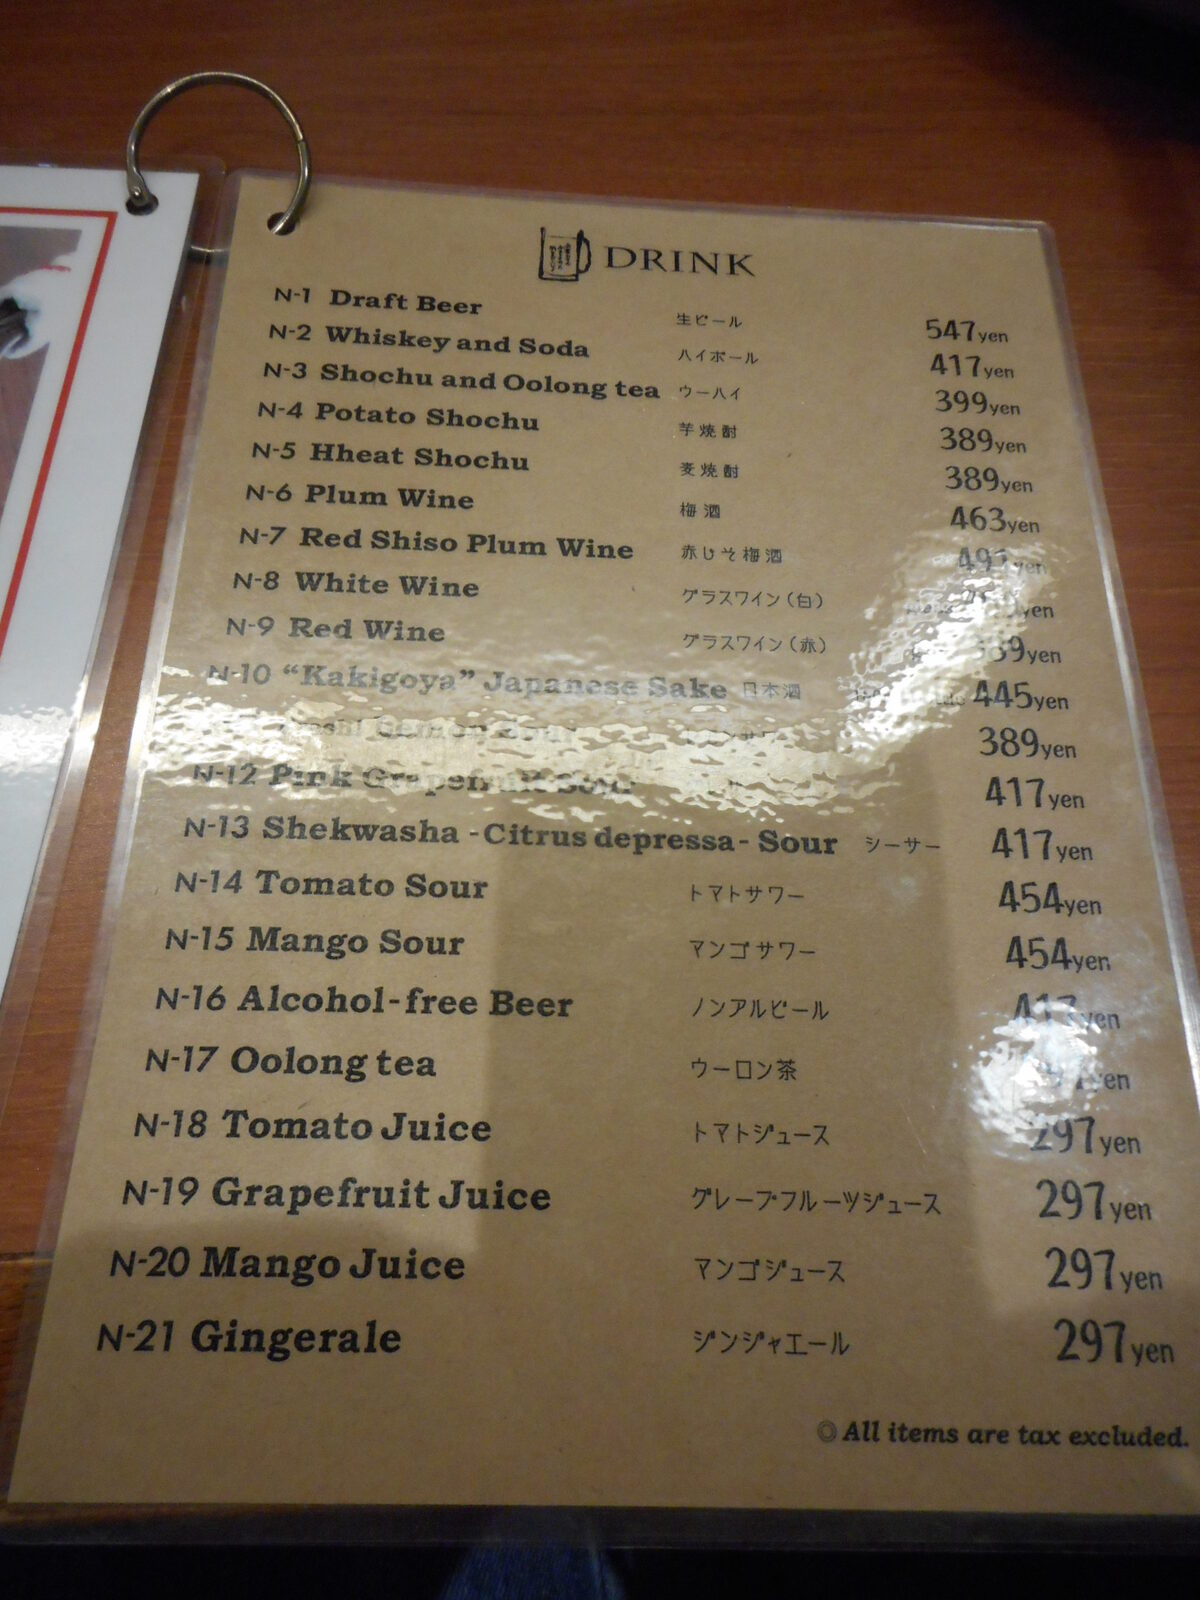 DRINK
N-1 Draft Beer 生ビール 547yen
N-2 Whiskey and Soda ハイボール 417yen
N-3 Shochu and Oolong tea ウーハイ 399yen
N-4 Potato Shochu 芋焼酎 389yen
N-5 Hheat Shochu 麦焼酎 389yen
N-6 Plum Wine 梅酒 463yen
N-7 Red Shiso Plum Wine 赤じそ梅酒 491yen
N-8 White Wine グラスワイン(白) yen
N-9 Red Wine グラスワイン(赤) yen
N-10 “Kakigoya” Japanese Sake 日本酒 445yen
389yen
N-12 Pink Grapefruit Sour 417yen
N-13 Shekwasha -Citrus depressa- Sour シーサー 417yen
N-14 Tomato Sour トマトサワー 454yen
N-15 Mango Sour マンゴサワー 454yen
N-16 Alcohol-free Beer ノンアルビール 417yen
N-17 Oolong tea ウーロン茶 yen
N-18 Tomato Juice トマトジュース 297yen
N-19 Grapefruit Juice グレープフルーツジュース 297yen
N-20 Mango Juice マンゴジュース 297yen
N-21 Gingerale ジンジャエール 297yen
◎All items are tax excluded.